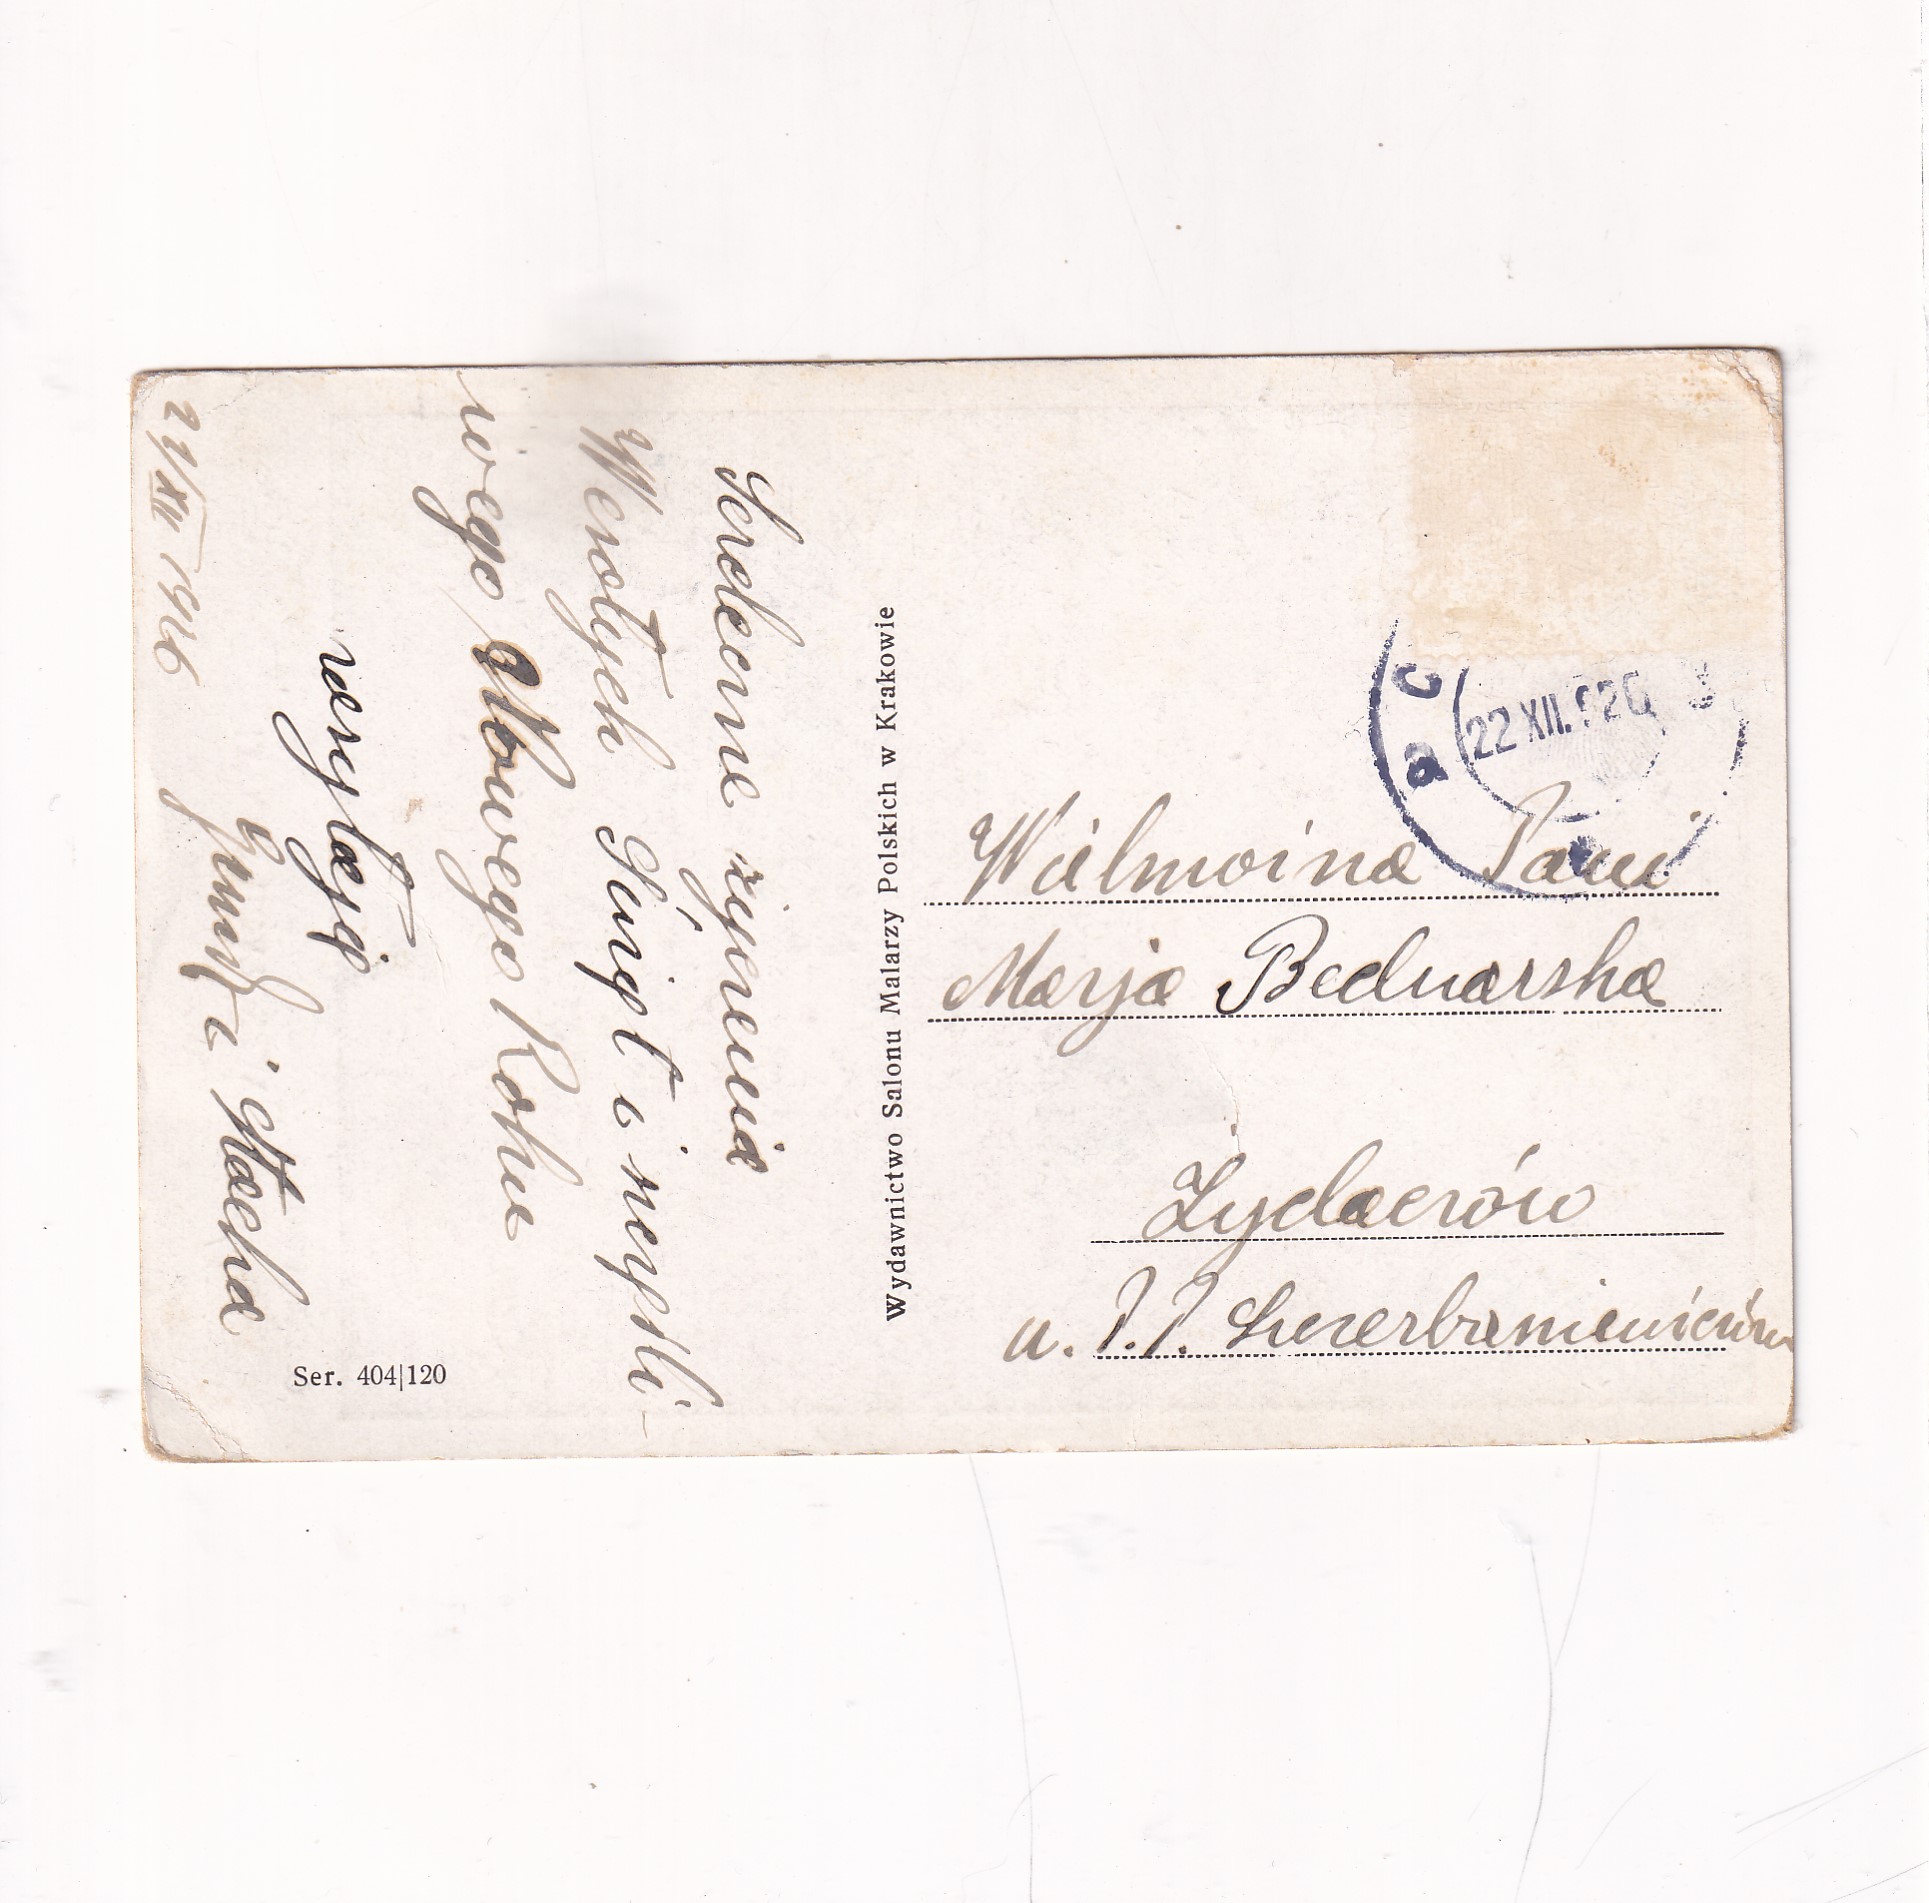 Serdeczne życzenia
Wesołych Świąt i szczęśli-
wego Nowego Roku
zasyłają
i Stacha
21/XII 1926
Ser. 404|120
Wydawnictwo Salonu Malarzy Polskich w Krakowie
22 XII. 926
Wielmożna Pani
Marja Bednarska
Żydaczów
u. P. P. Szczerbaniewiczów